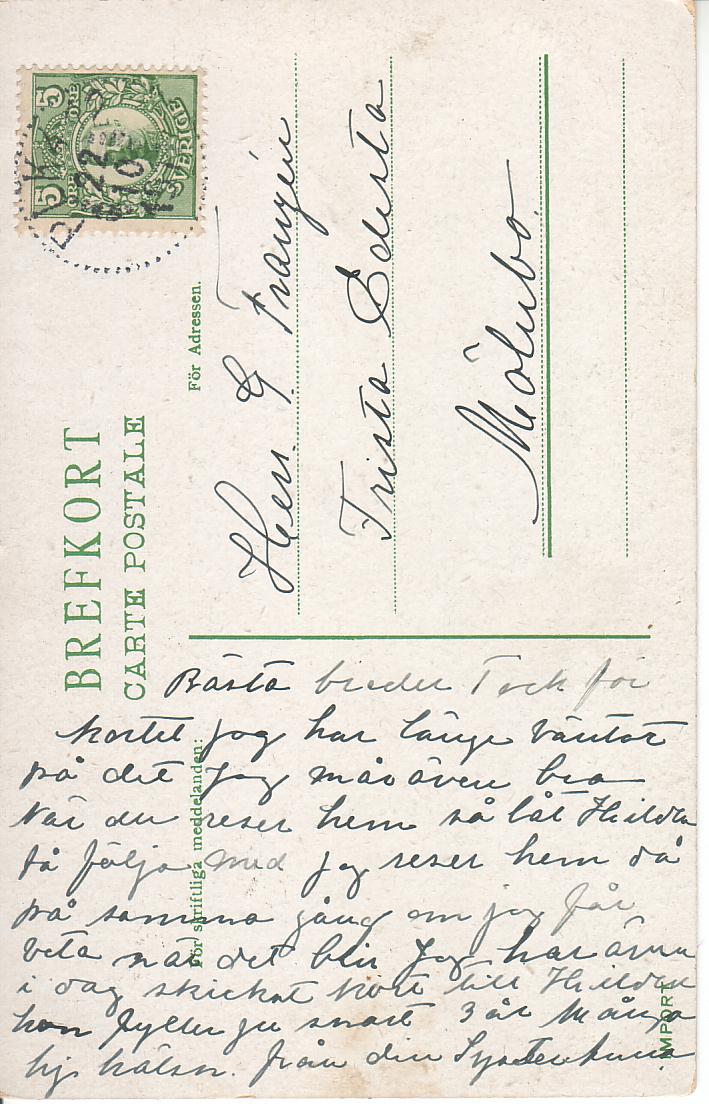 BREFKORT
CARTE POSTALE
För Adressen.
5 5
ÖRE ÖRE
SVERIGE
22
10
Herr. G. Franzén
Trista Edesta
Mölnbo.
För skriftliga meddelanden:
Bästa broder Tack för
kortet jag har länge väntat
på det Jag mår även bra
När du reser hem så låt Hilda
få följa med jag reser hem då
på samma gång om jag får
veta när det blir Jag har även
i dag skickat kort till Hilda
hon fyller ju snart 3 år Många
hj hälsn. från din Syster Anna
IMPORT